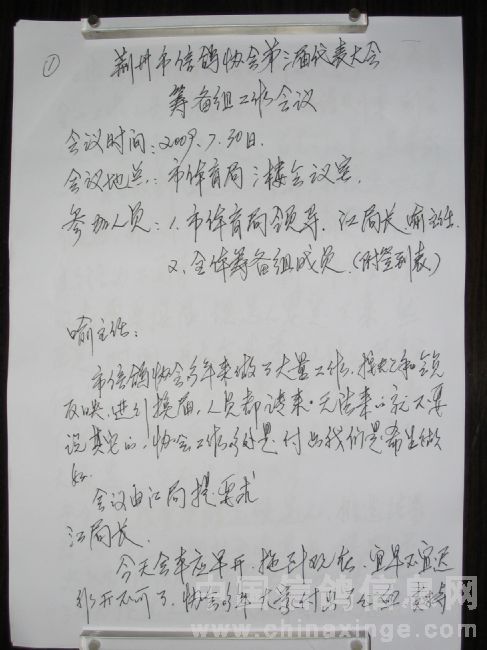 ①
荆州市信鸽协会第三届代表大会
筹备组工作会议
会议时间:2009.7.30日.
会议地点:市体育局三楼会议室.
参加人员:1.市体育局领导.江局长 喻主任.
2.全体筹备组成员.(附签到表)
喻主任:
市信鸽协会多年来做了大量工作,
反映.进行换届,人员都请来.
说其它的,协会工作 是付出我们是希望做
好.
会议由江局提要求
江局长.
今天会本应早开.拖到现在.宜早不宜迟
不开不可了.协会多年
中国信鸽信息网
www.chinaxinge.com